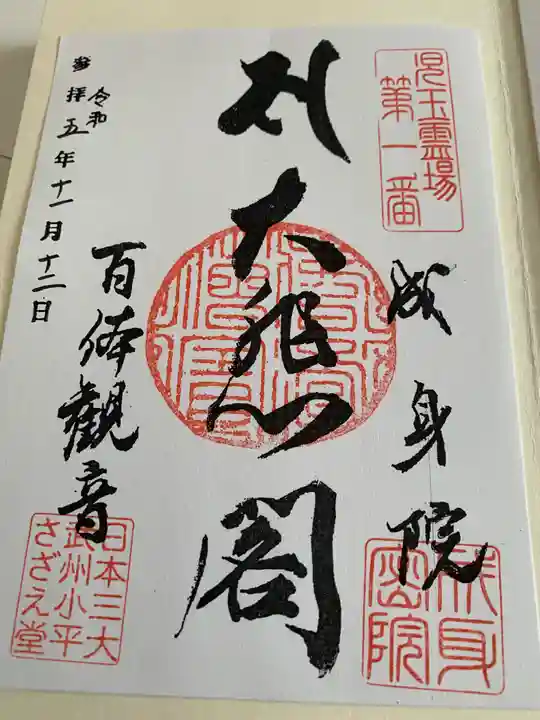 児玉霊場
第一番
成身院
大悲閣
百体觀音
参拝
令和五年十一月十二日
日本三大
武州小平
さざえ堂
成身
密院